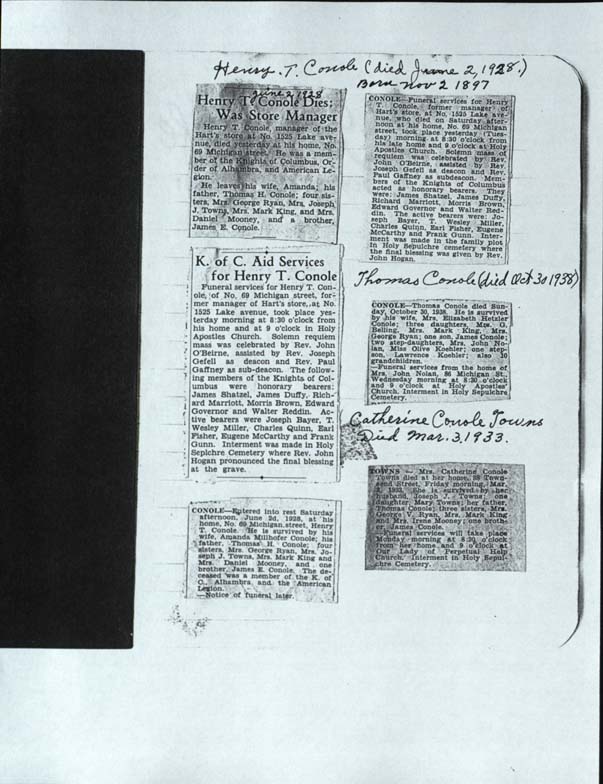 Henry. T. Conole (died June 2, 1928.)
Born Nov 2 1897
June 2 1928
Henry T. Conole Dies;
Was Store Manager
Henry T. Conole, manager of the
Hart's store at No. 1525 Lake ave-
nue, died yesterday at his home, No.
69 Michigan street. He was a mem-
ber of the Knights of Columbus, Or-
der of Alhambra, and American Le-
gion.
He leaves his wife, Amanda; his
father, Thomas H. Conole; four sis-
ters, Mrs. George Ryan, Mrs. Joseph
J. Towns, Mrs. Mark King, and Mrs.
Daniel Mooney, and a brother,
James E. Conole.
K. of C. Aid Services
for Henry T. Conole
Funeral services for Henry T. Con-
ole, of No. 69 Michigan street, for-
mer manager of Hart's store, at No.
1525 Lake avenue, took place yes-
terday morning at 8:30 o'clock from
his home and at 9 o'clock in Holy
Apostles Church. Solemn requiem
mass was celebrated by Rev. John
O'Beirne, assisted by Rev. Joseph
Gefell as deacon and Rev. Paul
Gaffney as sub-deacon. The follow-
ing members of the Knights of Col-
umbus were honorary bearers:
James Shatzel, James Duffy, Rich-
ard Marriott, Morris Brown, Edward
Governor and Walter Reddin. Ac-
tive bearers were Joseph Bayer, T.
Wesley Miller, Charles Quinn, Earl
Fisher, Eugene McCarthy and Frank
Gunn. Interment was made in Holy
Sepulchre Cemetery where Rev. John
Hogan pronounced the final blessing
at the grave.
CONOLE—Entered into rest Saturday
afternoon, June 2d, 1928, at his
home, No. 69 Michigan street, Henry
T. Conole. He is survived by his
wife, Amanda Millhofer Conole; his
father, Thomas H. Conole; four
sisters, Mrs. George Ryan, Mrs. Jo-
seph J. Towns, Mrs. Mark King and
Mrs. Daniel Mooney, and one
brother, James E. Conole. The de-
ceased was a member of the K. of
C., Alhambra and the American
Legion.
—Notice of funeral later.
CONOLE—Funeral services for Henry
T. Conole, former manager of
Hart's store, at No. 1525 Lake ave-
nue, who died on Saturday after-
noon at his home, No. 69 Michigan
street, took place yesterday (Tues-
day) morning at 8:30 o'clock from
his late home and 9 o'clock at Holy
Apostles Church. Solemn mass of
requiem was celebrated by Rev.
John O'Beirne, assisted by Rev.
Joseph Gefell as deacon and Rev.
Paul Gaffney as subdeacon. Mem-
bers of the Knights of Columbus
acted as honorary bearers. They
were: James Shatzel, James Duffy,
Richard Marriott, Morris Brown,
Edward Governor and Walter Red-
din. The active bearers were: Jo-
seph Bayer, T. Wesley Miller,
Charles Quinn, Earl Fisher, Eugene
McCarthy and Frank Gunn. Inter-
ment was made in the family plot
in Holy Sepulchre cemetery where
the final blessing was given by Rev.
John Hogan.
Thomas Conole (died Oct 30 1938)
CONOLE—Thomas Conole died Sun-
day, October 30, 1938. He is survived
by his wife, Mrs. Elizabeth Hetzler
Conole; three daughters, Mrs. G.
Belling, Mrs. Mark King, Mrs.
George Ryan; one son, James Conole;
two step-daughters, Mrs. John No-
lan, Miss Olive Koehler; one step-
son, Lawrence Koehler; also 10
grandchildren.
—Funeral services from the home of
Mrs. John Nolan, 86 Michigan St.,
Wednesday morning at 8:30 o'clock
and 9 o'clock at Holy Apostles'
Church. Interment in Holy Sepulchre
Cemetery.
Catherine Conole Towns
Died Mar. 3, 1933.
TOWNS — Mrs. Catherine Conole
Towns died at her home, 38 Town-
send Street, Friday morning, Mar.
3, 1933. She is survived by her
husband, Joseph J. Towns; one
daughter, Mary Towns; her father,
Thomas Conole; three sisters, Mrs.
George V. Ryan, Mrs. Mark King
and Mrs. Irene Mooney; one broth-
er, James Conole.
—Funeral services will take place
Monday morning at 8:30 o'clock
from her home and 9 o'clock at
Our Lady of Perpetual Help
Church. Interment in Holy Sepul-
chre Cemetery.